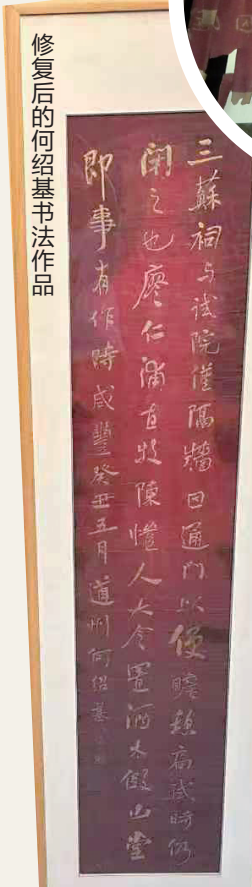 修复后的何绍基书法作品
三蘇祠与試院僅隔牆囙通門以便瞻憩扃試時仍
閉之也廖仁浦直牧陳人大令置酒木假山堂
即事有作時咸豐癸丑五月道州何紹基